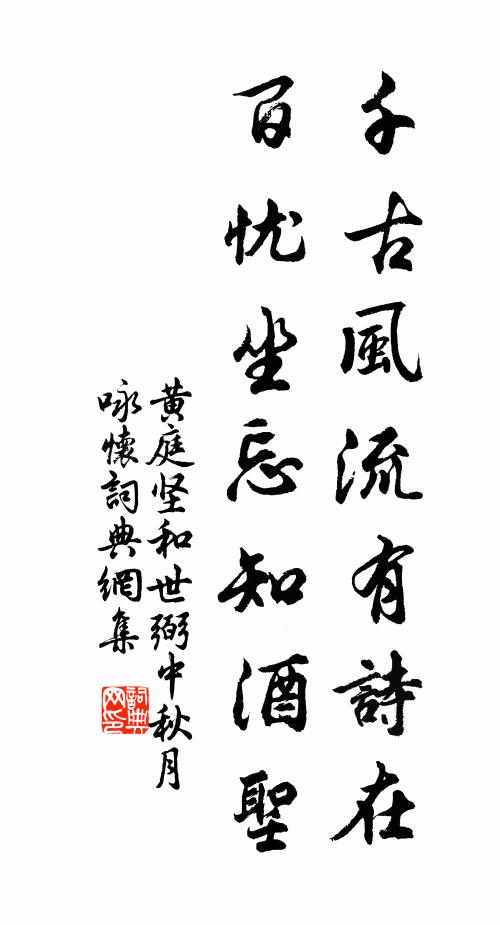 千古風流有詩在
百忧坐忘知酒聖
黄庭坚和世弼中秋月
咏懷詞典網集
詞典网印